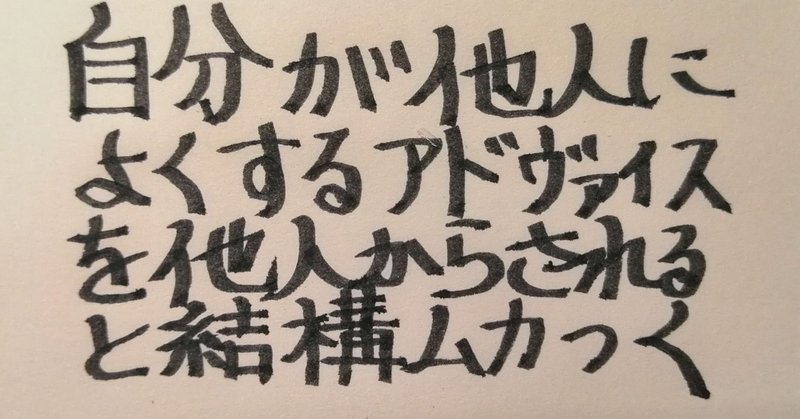 自分が他人に
よくするアドヴァイス
を他人からされる
と結構ムカつく